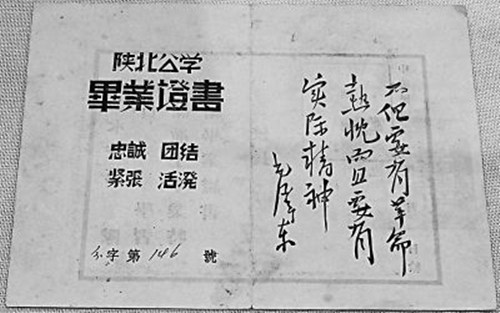 陕北公学
畢業證書
忠誠 团结
紧張 活潑
字第146號
不但要有革命
熱忱而且要有
实际精神
毛澤东